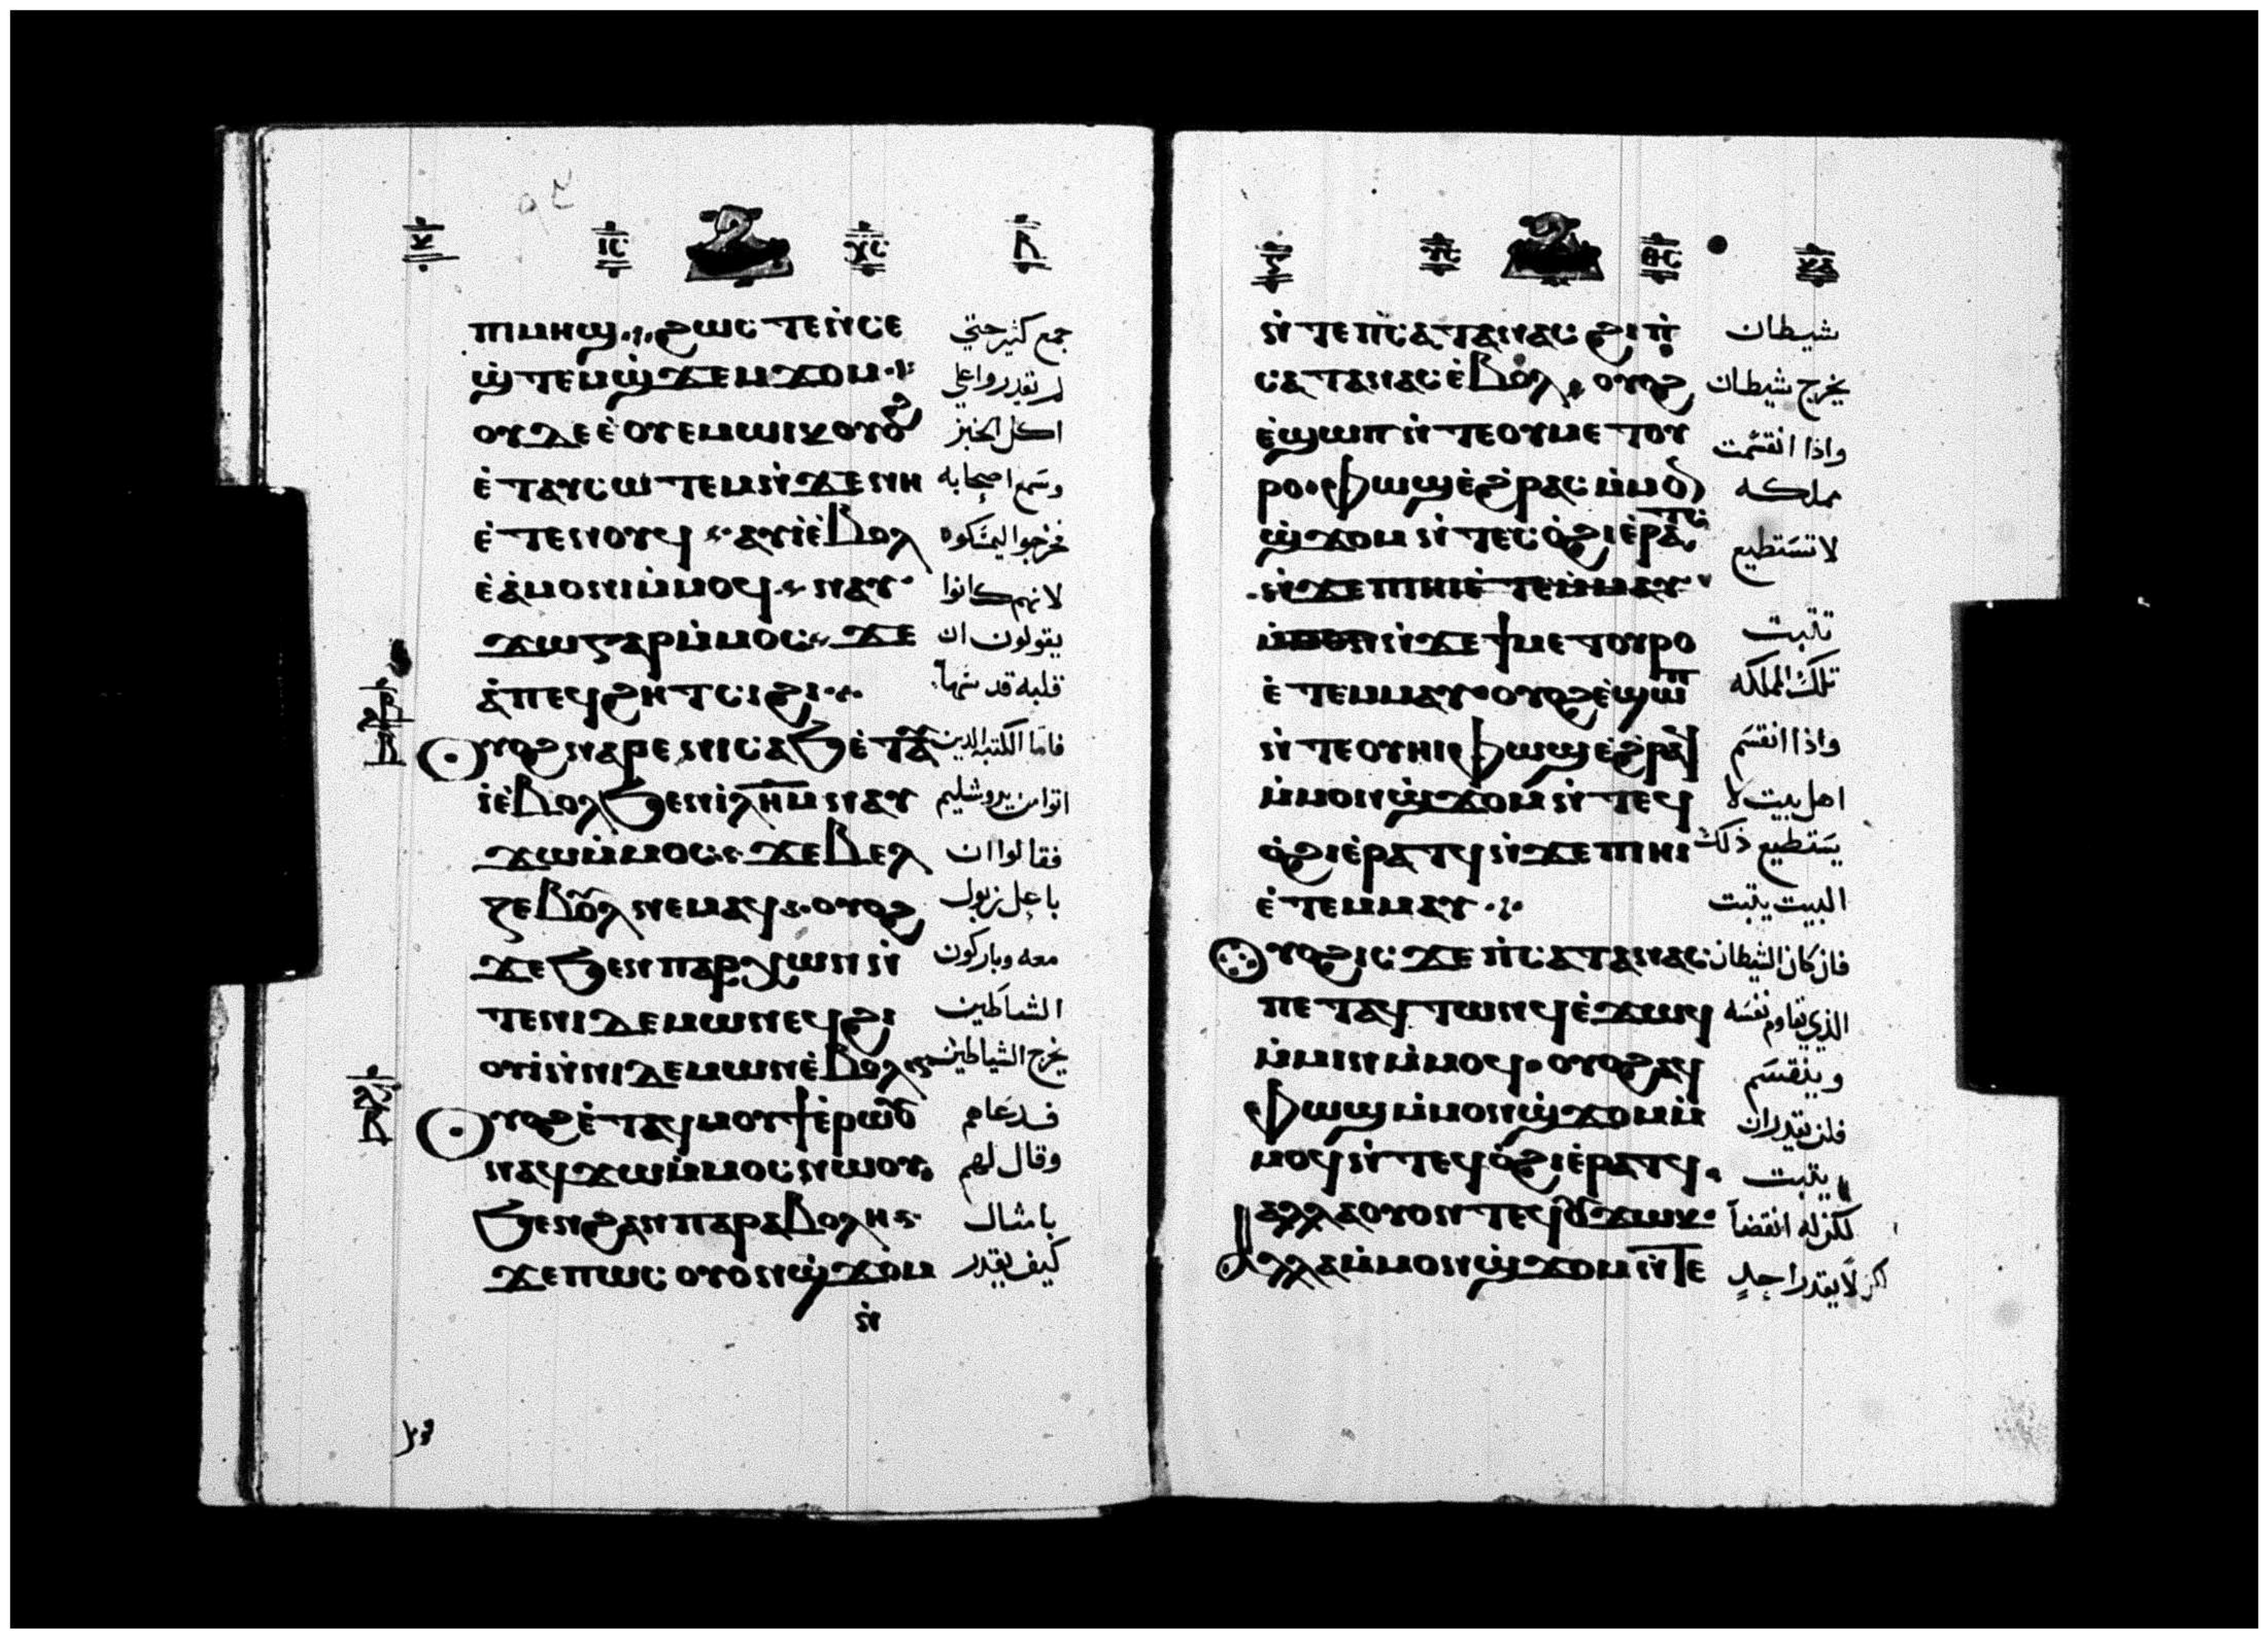 ⲓⲥ ⲭⲥ ⲃ
ⲡⲓⲙⲏϣ ϩⲱⲥ ⲧⲉⲛ̀ⲥⲉ جمع كثير حتي
ϣ̀ⲧⲉⲙϣ̀ϫⲉⲙϫⲟⲙ لم يقدروا علي
ⲟⲩⲇⲉ ⲉ̀ⲟⲩⲉⲙⲱⲓⲕ ⲟⲩⲟϩ اكل الخبز
ⲉ̀ⲧⲁⲩⲥⲱⲧⲉⲙ ⲛ̀ϫⲉ ⲛⲏ وسمع اصحابه
ⲉ̀ⲧⲉⲛⲟⲩϥ ⲁⲩⲓ̀ ⲉ̀ⲃⲟⲗ فخرجوا ليمسكوه
ⲉ̀ⲁ̀ⲙⲟⲛⲓ ⲙ̀ⲙⲟϥ ⲛⲁⲩ لانهم كانوا
ϫⲱ ⲅⲁⲣ ⲙ̀ⲙⲟⲥ ϫⲉ يقولون ان
ⲁ̀ⲡⲉϥϩⲏⲧ ⲥⲓϩⲓ قلبه قد سها
ⲟⲩⲟϩ ⲛⲁⲣⲉ ⲛⲓⲥⲁϧ ⲉ̀ⲧⲁⲩ فاما الكتبه الدين
ⲓ̀ ⲉ̀ⲃⲟⲗ ϧⲉⲛ ⲓ̀ⲗⲏⲙ ⲛⲁⲩ اتوا من يروشليم
ϫⲱ ⲙ̀ⲙⲟⲥ ϫⲉ ⲃⲉⲗ فقالوا ان
ⲍⲉⲃⲟⲩⲗ ⲛⲉⲙⲁϥ ⲟⲩⲟϩ باعل زبول
ϫⲉ ϧⲉⲛ ⲡⲁⲣⲭⲱⲛ ⲛ̀ معه وباركون
ⲧⲉ ⲛⲓⲇⲉⲙⲱⲛ ⲉϥϩⲓ الشياطين
ⲟⲩⲓ̀ ⲛ̀ⲛⲓⲇⲉⲙⲱⲛ ⲉ̀ⲃⲟⲗ يخرج الشياطين
ⲟⲩⲟϩ ⲉ̀ⲧⲁϥⲙⲟⲩϯ ⲉ̀ⲣⲱⲟⲩ فدعاهم
ⲛⲁϥϫⲱ ⲙ̀ⲙⲟⲥ ⲛⲱⲟⲩ وقال لهم
ϧⲉⲛ ϩⲁⲛⲡⲁⲣⲁⲃⲟⲗⲏ بامثال
ϫⲉ ⲡⲱⲥ ⲟⲩⲟⲛ ϣ̀ϫⲟⲙ كيف يقدر
ⲛ̀
ⲩⲥ ⲑⲥ
ⲛ̀ⲧⲉ ⲡ̀ⲥⲁⲧⲁⲛⲁⲥ ϩⲓ ⲡ̀ شيطان
ⲥⲁⲧⲁⲛⲁⲥ ⲉ̀ⲃⲟⲗ ⲟⲩⲟϩ يخرج شيطان
ⲉ̀ϣⲱⲡ ⲛ̀ⲧⲉ ⲟⲩⲙⲉⲧⲟⲩ واذا انقسمت
ⲣⲟ ⲫⲱϣ ⲉ̀ϩⲣⲁⲥ ⲙ̀ⲙⲟⲛ مملكه
ϣ̀ϫⲟⲙ ⲛ̀ⲧⲉⲥ ⲟ̀ϩⲓ ⲉ̀ⲣⲁⲧⲥ لا تستطيع
ⲛ̀ϫⲉ ⲡⲓⲏⲓ ⲉ̀ⲧⲉⲙⲙⲁⲩ
ⲛ̀ϫⲉ ϯⲙⲉⲧⲟⲩⲣⲟ تثبت
ⲉ̀ⲧⲉⲙⲙⲁⲩ ⲟⲩⲟϩ ⲉ̀ϣⲱⲡ تلك المملكه
ⲛ̀ⲧⲉ ⲟⲩⲏⲓ ⲫⲱϣ ⲉ̀ϩⲣⲁϥ واذا انقسم
ⲙ̀ⲙⲟⲛ ϣ̀ϫⲟⲙ ⲛ̀ⲧⲉϥ اهل بيت لا
ⲟ̀ϩⲓ ⲉ̀ⲣⲁⲧϥ ⲛ̀ϫⲉ ⲡⲓⲏⲓ يستطيع ذلك
ⲉ̀ⲧⲉⲙⲙⲁⲩ البيت يثبت
ⲟⲩⲟϩ ⲓⲥϫⲉ ⲡ̀ⲥⲁⲧⲁⲛⲁⲥ فان كان الشيطان
ⲡⲉⲧⲁϥⲧⲱⲛϥ ⲉ̀ϫⲱϥ الذي يقاوم نفسه
ⲙ̀ⲙⲓⲛ ⲙ̀ⲙⲟϥ ⲟⲩⲟϩ ⲁϥ وينقسم
ⲫⲱϣ ⲙ̀ⲙⲟⲛ ϣ̀ϫⲟⲙ ⲙ̀ فلن يقدر ان
ⲙⲟϥ ⲛ̀ⲧⲉϥ ⲟ̀ϩⲓ ⲉ̀ⲣⲁⲧϥ يثبت
ⲁⲗⲗⲁ ⲟⲩⲟⲛⲧⲉϥ ⲟⲩϫⲱⲕ لكن له انقضا
ⲁⲗⲗⲁ ⲙ̀ⲙⲟⲛ ϣ̀ϫⲟⲙ ⲛ̀ⲧⲉ لكن لا يقدر احد